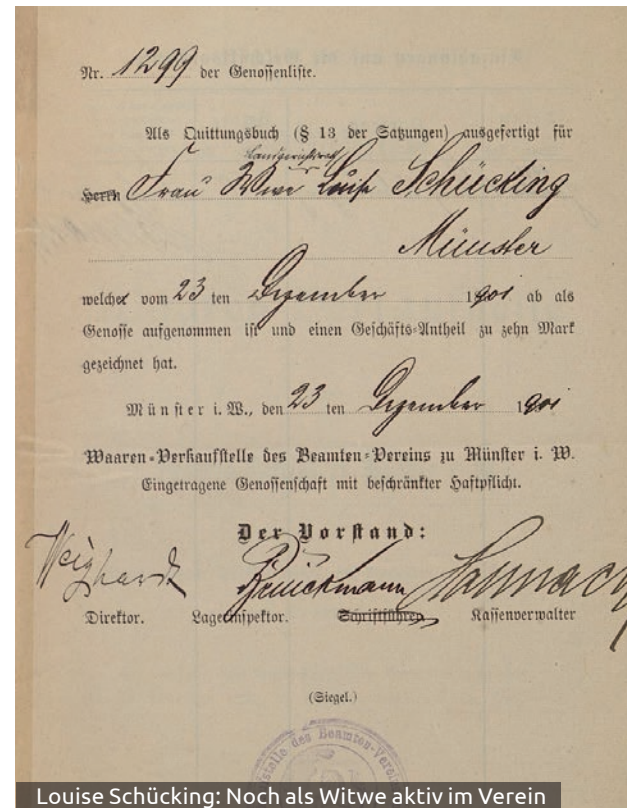 Nr. 1299 der Genossenliste.
Als Quittungsbuch (§ 13 der Satzungen) ausgefertigt für
Landgerichtsrath
Herrn Frau Wwe Luise Schücking
Münster
welcher vom 23 ten Dezember 1901 ab als
Genosse aufgenommen ist und einen Geschäfts-Antheil zu zehn Mark
gezeichnet hat.
Münster i. W., den 23 ten Dezember 1901
Waaren-Verkaufstelle des Beamten-Vereins zu Münster i. W.
Eingetragene Genossenschaft mit beschränkter Haftpflicht.
Der Vorstand:
Brüückmann
Direktor. Lagerinspektor. Schriftführer. Kassenverwalter
(Siegel.)
des Beamten-Vereins
Louise Schücking: Noch als Witwe aktiv im Verein